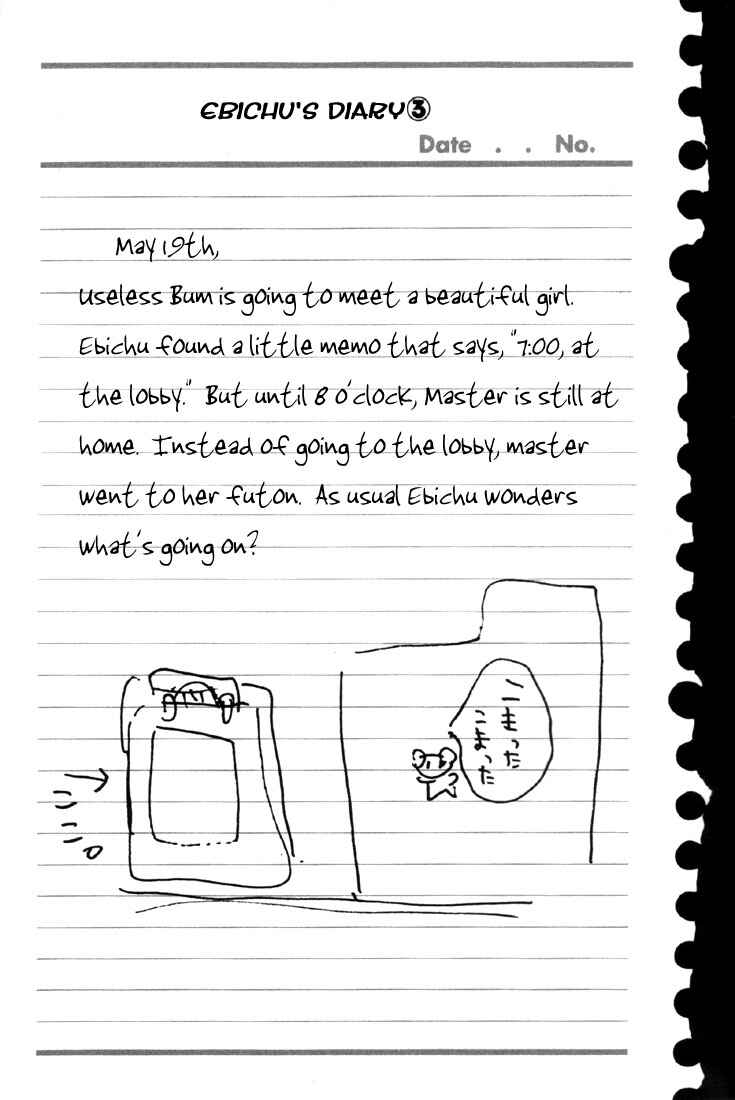 EBICHU'S DIARY③
Date . . No.
May 19th,
Useless Bum is going to meet a beautiful girl.
Ebichu found a little memo that says, "7:00, at
the lobby." But until 8 o'clock, Master is still at
home. Instead of going to the lobby, master
went to her futon. As usual Ebichu wonders
what's going on?
こまった
こまった